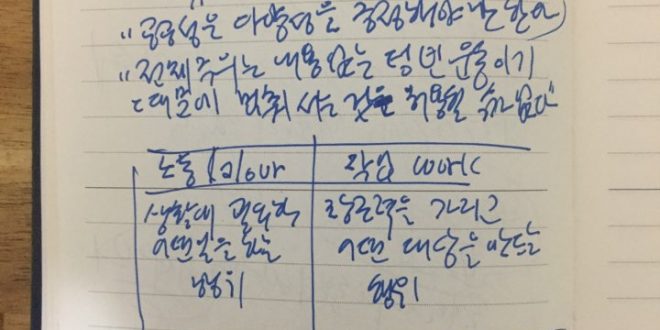 "공공성은 다양성을 긍정해야만 한다"
"전체주의는 내용없는 텅 빈 운동이기
때문에 멈춰 서는 것을 허용할 수 없다"
노동 labour 작업 work
생활에 필요한 가지고
어떤 일을 하는 어떤 대상을 만드는
행위 행위